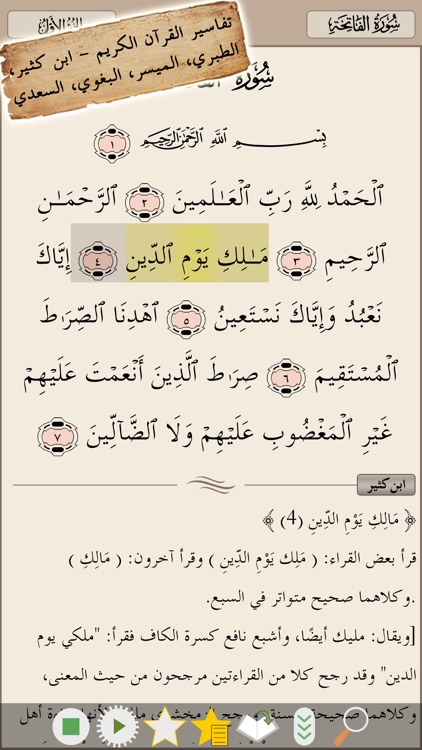 سُورَةُ الفَاتِحَةِ
الجُزءُ الأَوَّلُ
تفاسير القرآن الكريم - ابن كثير،
الطبري، الميسر، البغوي، السعدي
سُورَةُ
بِسْمِ اللَّهِ الرَّحْمَٰنِ الرَّحِيمِ ١
ٱلْحَمْدُ لِلَّهِ رَبِّ ٱلْعَـٰلَمِينَ ٢ ٱلرَّحْمَـٰنِ
ٱلرَّحِيمِ ٣ مَـٰلِكِ يَوْمِ ٱلدِّينِ ٤ إِيَّاكَ
نَعْبُدُ وَإِيَّاكَ نَسْتَعِينُ ٥ ٱهْدِنَا ٱلصِّرَٰطَ
ٱلْمُسْتَقِيمَ ٦ صِرَٰطَ ٱلَّذِينَ أَنْعَمْتَ عَلَيْهِمْ
غَيْرِ ٱلْمَغْضُوبِ عَلَيْهِمْ وَلَا ٱلضَّآلِّينَ ٧
ابن كثير
﴿ مَالِكِ يَوْمِ الدِّينِ (4) ﴾
قرأ بعض القراء: ( مَلِك يَوْمِ الدِّينِ ) وقرأ آخرون: ( مَالِكِ )
.وكلاهما صحيح متواتر في السبع.
[ويقال: مليك أيضًا، وأشبع نافع كسرة الكاف فقرأ: "ملكي يوم
الدين" وقد رجح كلا من القراءتين مرجحون من حيث المعنى،
وكلاهما صحيحة حسنة، ورجح الزمخشري أهل